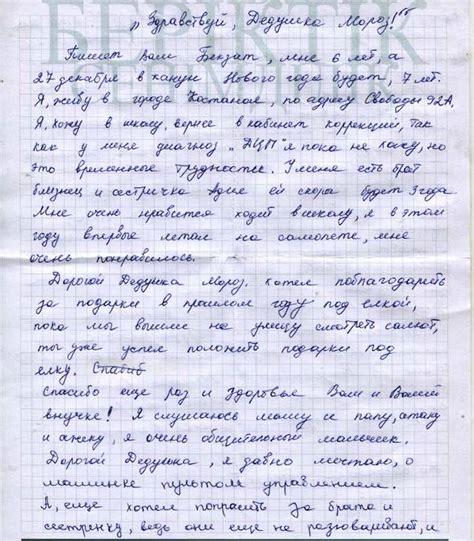 БЕРІКТІК
„Здравствуй, Дедушка Мороз!"
Пишет Вам Бекзат, мне 6 лет, а
27 декабря в канун Нового года будет, 7 лет.
Я, живу в городе Костанае, по адресу Свободы 92А,
Я, хожу в школу, вернее в кабинет коррекций, так
как у меня диагноз „ДЦП" я пока не хожу, но
это временные трудности. У меня есть брат
близнец и сестричка ей скора будет 3 года.
Мне очень нравится ходит в школу, я в этом
году впервые летал на самолете, мне
очень понравилось.
Дорогой Дедушка Мороз. хотел поблагодарить
за подарки в прошлом году под елкой,
пока мы вышли на улицу смотреть салют,
ты уже успел положить подарки под
елку. Спасиб
спасибо еще раз и здоровье Вам и Вашей
внучке! Я слушаюсь маму и папу, атаку
и ажеку, я очень общительный мальчик.
Дорогой Дедушка, я давно мечтаю, о
машинке пультом управлением.
А, еще хотел попрасить за брата и
сестринку, ведь они еще не разговаривают, и